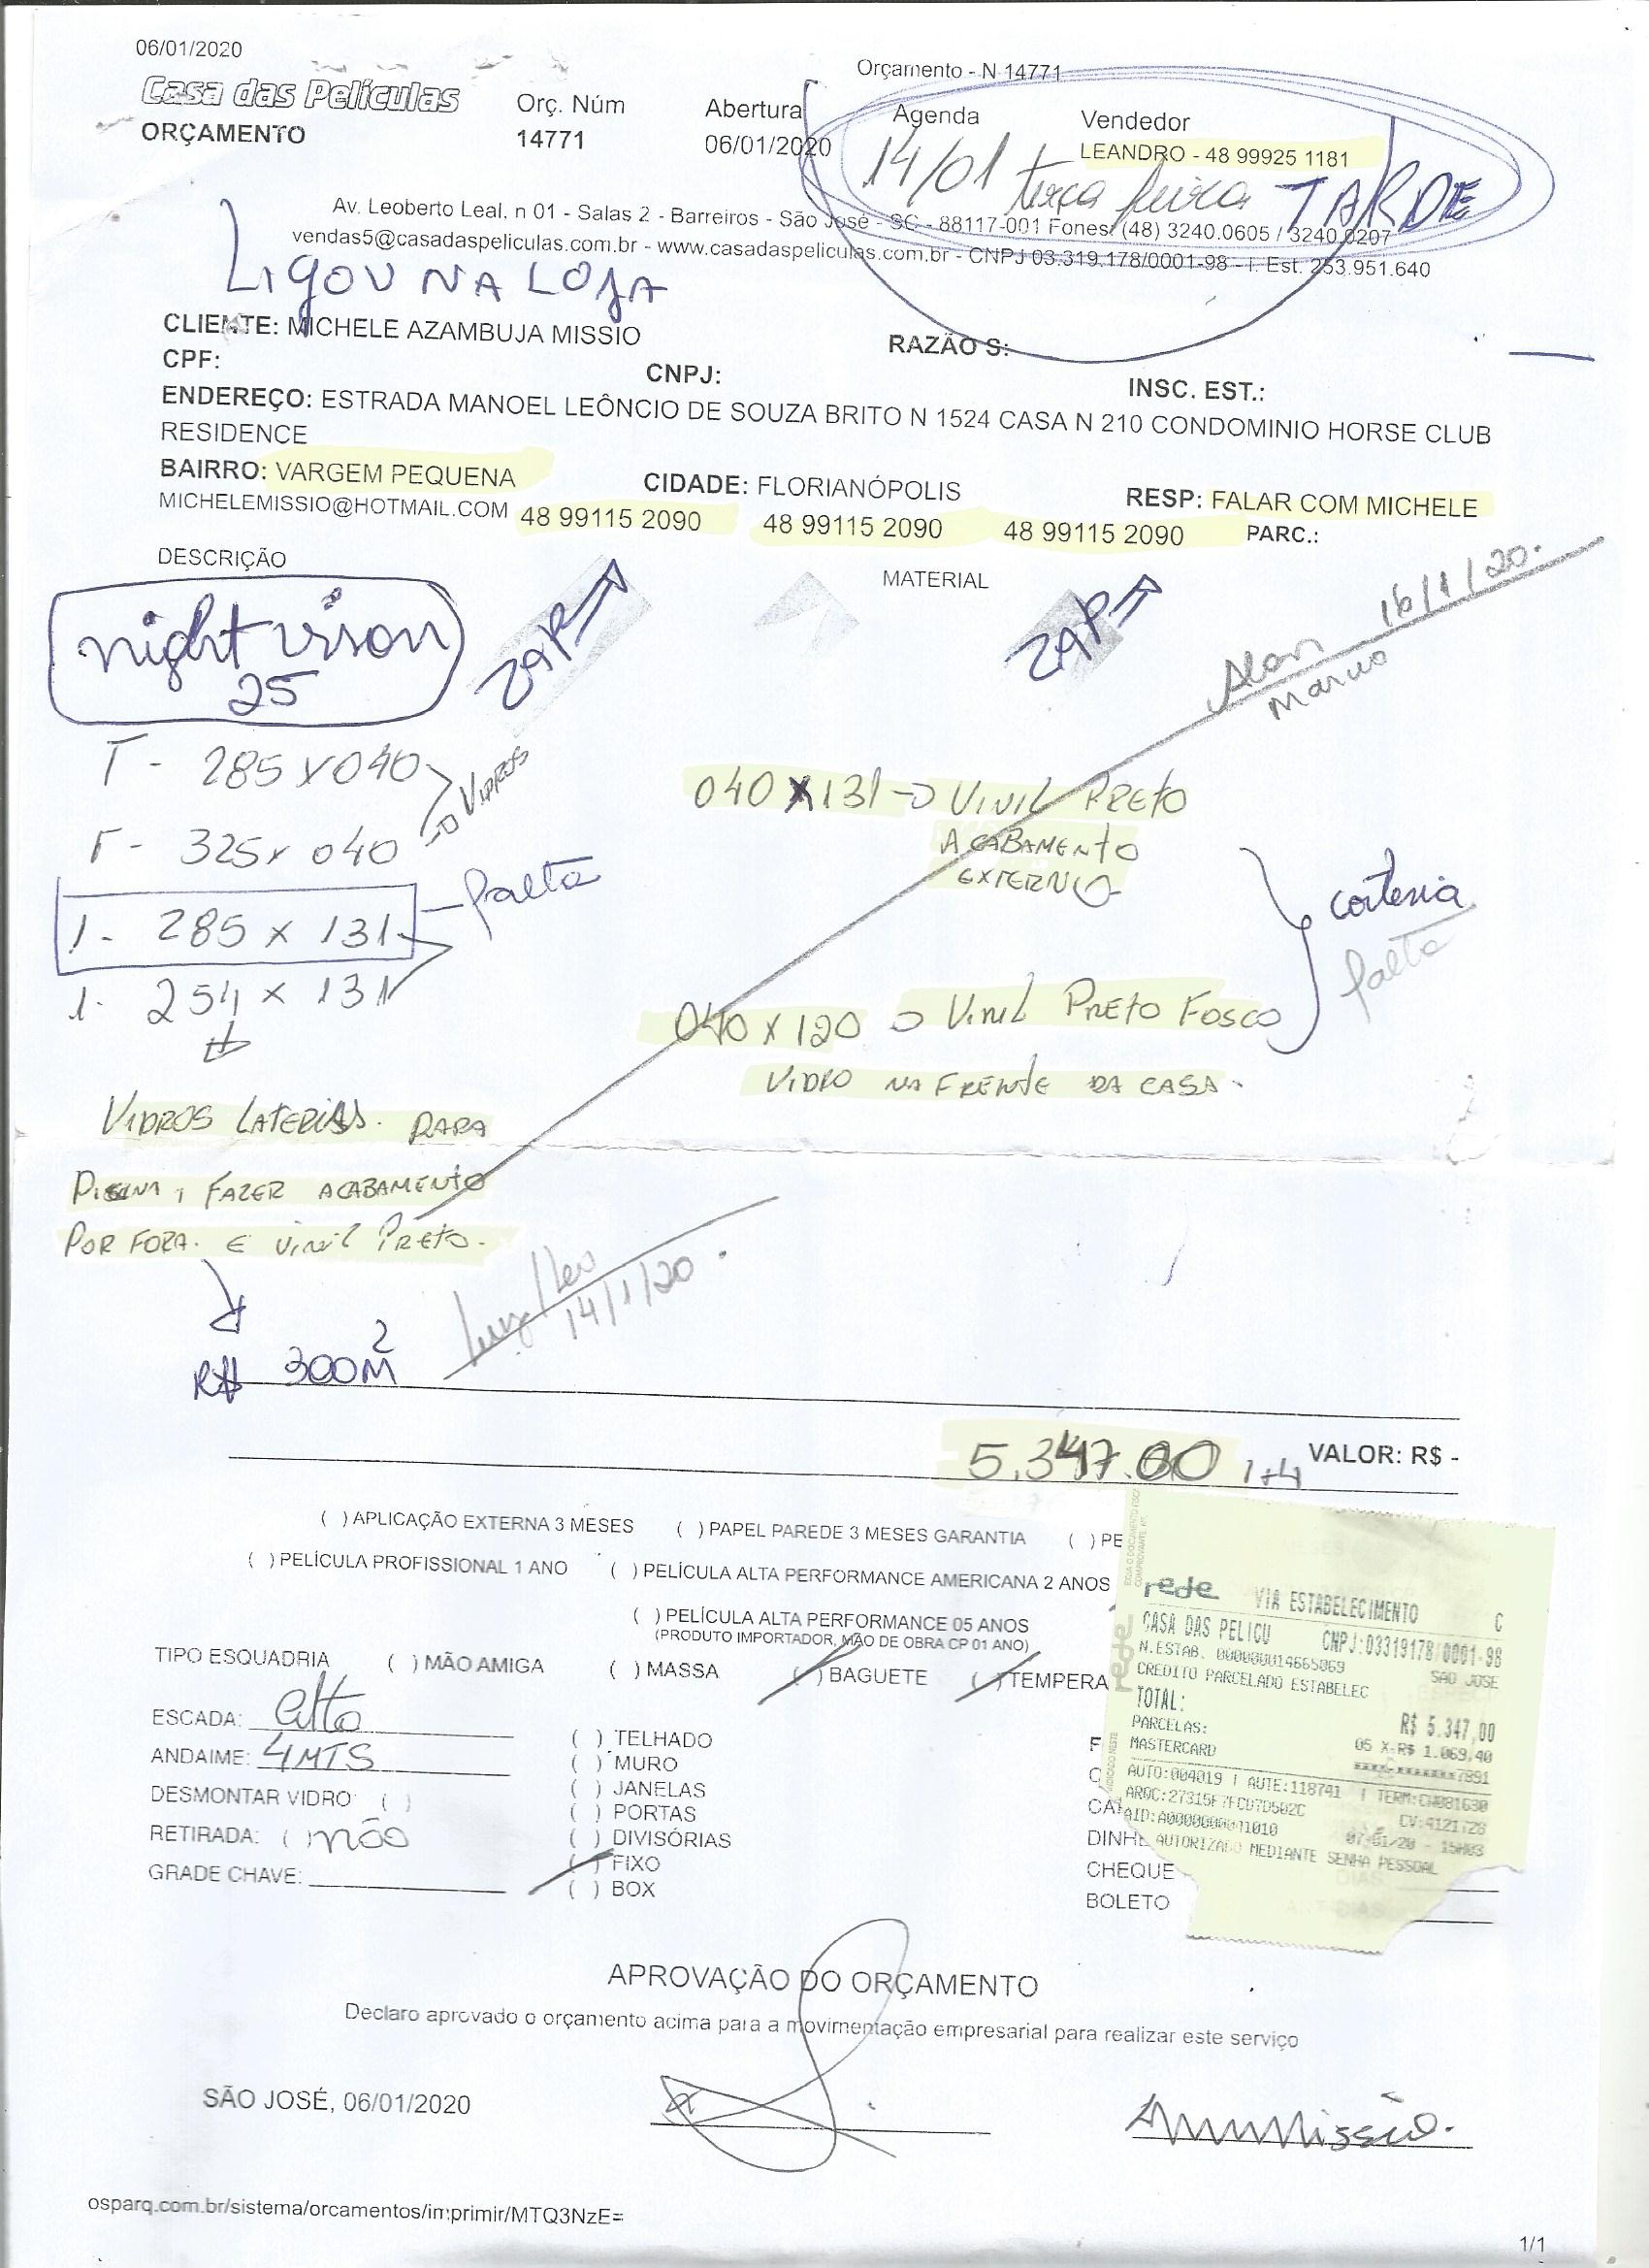 06/01/2020
Orçamento - N 14771
Casa das Películas
ORÇAMENTO
Orç. Núm
14771
Abertura
06/01/2020
Agenda
14/01 terça feira TARDE
Vendedor
LEANDRO - 48 99925 1181
Av. Leoberto Leal, n 01 - Salas 2 - Barreiros - São José - SC - 88117-001 Fones: (48) 3240.0605 / 3240.0207
vendas5@casadaspeliculas.com.br - www.casadaspeliculas.com.br - CNPJ 03.319.178/0001-98 - I. Est. 253.951.640
LIGOU NA LOJA
CLIENTE: MICHELE AZAMBUJA MISSIO
RAZÃO S:
CPF:
CNPJ:
INSC. EST.:
ENDEREÇO: ESTRADA MANOEL LEÔNCIO DE SOUZA BRITO N 1524 CASA N 210 CONDOMINIO HORSE CLUB
RESIDENCE
BAIRRO: VARGEM PEQUENA
CIDADE: FLORIANÓPOLIS
RESP: FALAR COM MICHELE
MICHELEMISSIO@HOTMAIL.COM 48 99115 2090 48 99115 2090 48 99115 2090 PARC.:
DESCRIÇÃO
MATERIAL
night vison
25
ZAP
ZAP
16/1/20.
Alan
Marcio
285 X 040
VIDROS
325 x 040
1 - 285 x 131 - falta
1 - 254 x 131
040 X 131 → VINIL PRETO
ACABAMENTO
EXTERNO
cortesia
falta
040 x 120 → VINIL PRETO FOSCO
VIDRO NA FRENTE DA CASA.
VIDROS LATERIAS. PARA
PISCINA, FAZER ACABAMENTO
POR FORA. E VINIL PRETO.
14/1/20.
R$ 300M²
5.347.00 1+4 VALOR: R$ -
( ) APLICAÇÃO EXTERNA 3 MESES ( ) PAPEL PAREDE 3 MESES GARANTIA ( ) PE
( ) PELÍCULA PROFISSIONAL 1 ANO ( ) PELÍCULA ALTA PERFORMANCE AMERICANA 2 ANOS
( ) PELÍCULA ALTA PERFORMANCE 05 ANOS
(PRODUTO IMPORTADOR, MÃO DE OBRA CP 01 ANO)
TIPO ESQUADRIA ( ) MÃO AMIGA ( ) MASSA ( ) BAGUETE ( ) TEMPERA
ESCADA: alta
ANDAIME: 4MTS
DESMONTAR VIDRO: ( )
RETIRADA: ( ) não
GRADE CHAVE:
( ) TELHADO
( ) MURO
( ) JANELAS
( ) PORTAS
( ) DIVISÓRIAS
( ) FIXO
( ) BOX
DINHE
CHEQUE
BOLETO
rede
VIA ESTABELECIMENTO C
CASA DAS PELICU CNPJ:03319178/0001-98
N.ESTAB. 000000014665069 SAO JOSE
CREDITO PARCELADO ESTABELEC
TOTAL: R$ 5.347,00
PARCELAS: 05 X R$ 1.069,40
MASTERCARD ************7991
AUTO:004019 | AUTE:118741 | TERM:CW081630
ARQC:27315F7FCD7D502C CV:4121728
AID:A0000000041010 07/01/20 - 15H03
AUTORIZADO MEDIANTE SENHA PESSOAL
APROVAÇÃO DO ORÇAMENTO
Declaro aprovado o orçamento acima para a movimentação empresarial para realizar este serviço
SÃO JOSÉ, 06/01/2020
osparq.com.br/sistema/orcamentos/imprimir/MTQ3NzE=
1/1